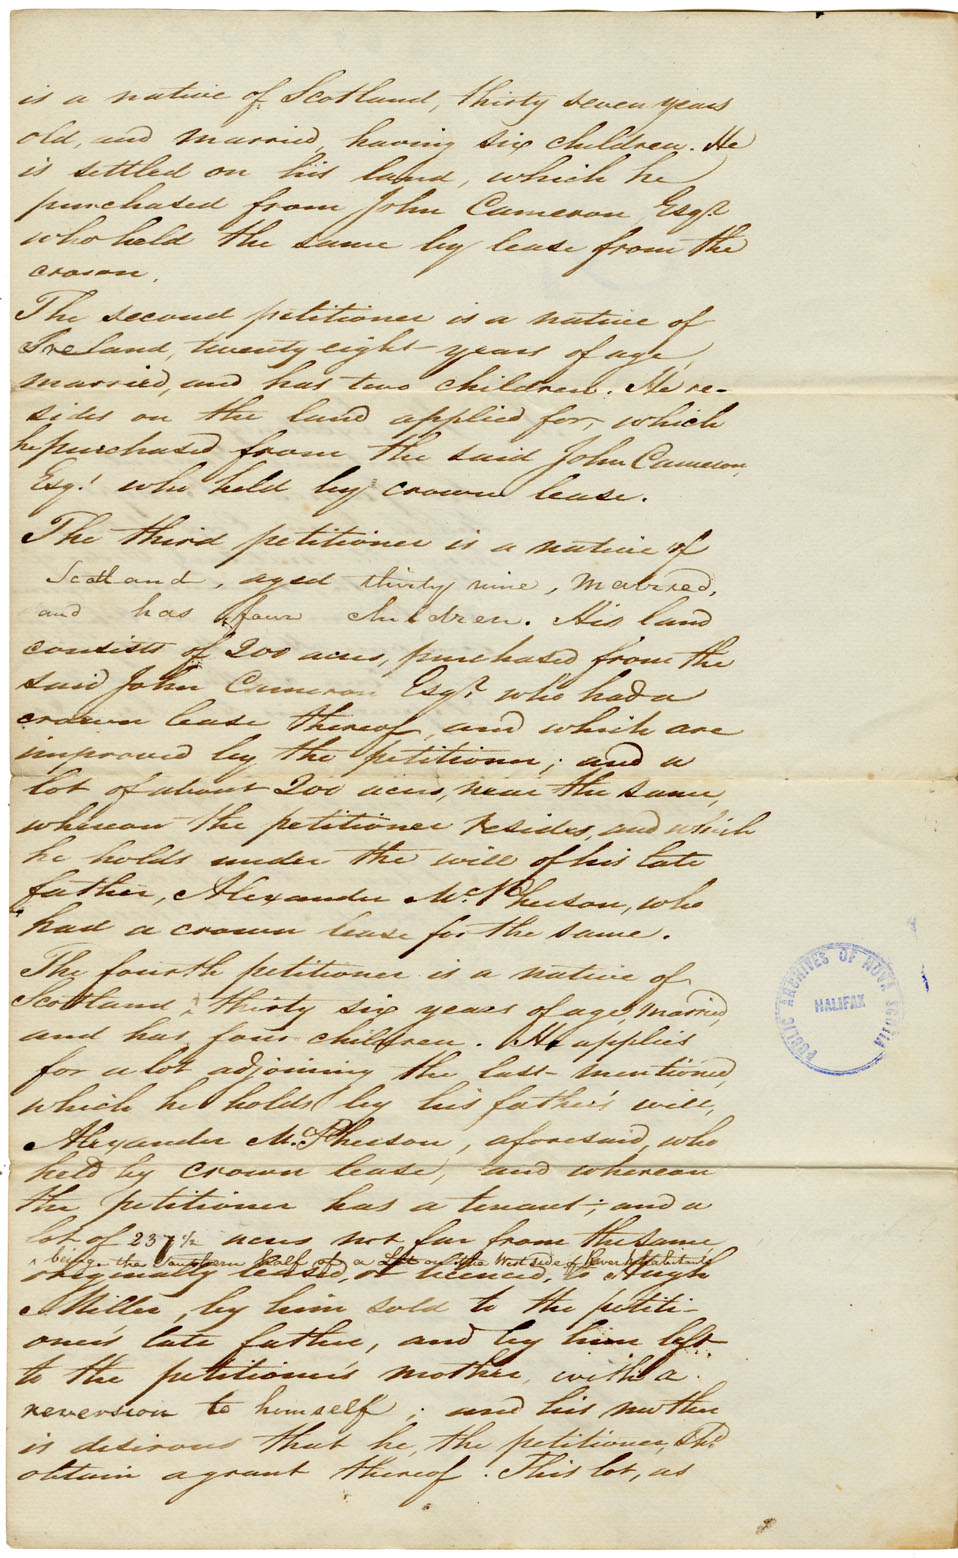 is a native of Scotland, thirty seven years
old, and married, having six children. He
is settled on his land, which he
purchased from John Cameron Esqr.
who held the same by lease from the
crown.
The second petitioner is a native of
Ireland, twenty eight years of age,
married, and has two children. He re-
sides on the land applied for, which
he purchased from the said John Cameron,
Esqr. who held by crown lease.
The third petitioner is a native of
Scotland, aged thirty nine, married,
and has four children. His land
consists of 200 acres, purchased from the
said John Cameron Esqr. who had a
crown lease thereof, and which are
improved by the petitioner; and a
lot of about 200 acres, near the same,
whereon the petitioner resides, and which
he holds under the will of his late
father, Alexander McPherson, who
had a crown lease for the same.
The fourth petitioner is a native of
Scotland, thirty six years of age, married,
and has four children. He applies
for a lot adjoining the last-mentioned,
which he holds by his father's will,
Alexander McPherson, aforesaid, who
held by crown lease, and whereon
the petitioner has a tenant; and a
lot of 237 1/2 acres not far from the same
being the Southern half of a Lot on the West side of River
originally leased, or licenced, to Hugh
Miller, by him sold to the petiti-
oner's late father, and by him left
to the petitioner's mother, with a
reversion to himself; and his mother
is desirous that he, the petitioner, shd.
obtain a grant thereof. This lot, as
PUBLIC ARCHIVES OF NOVA SCOTIA
HALIFAX